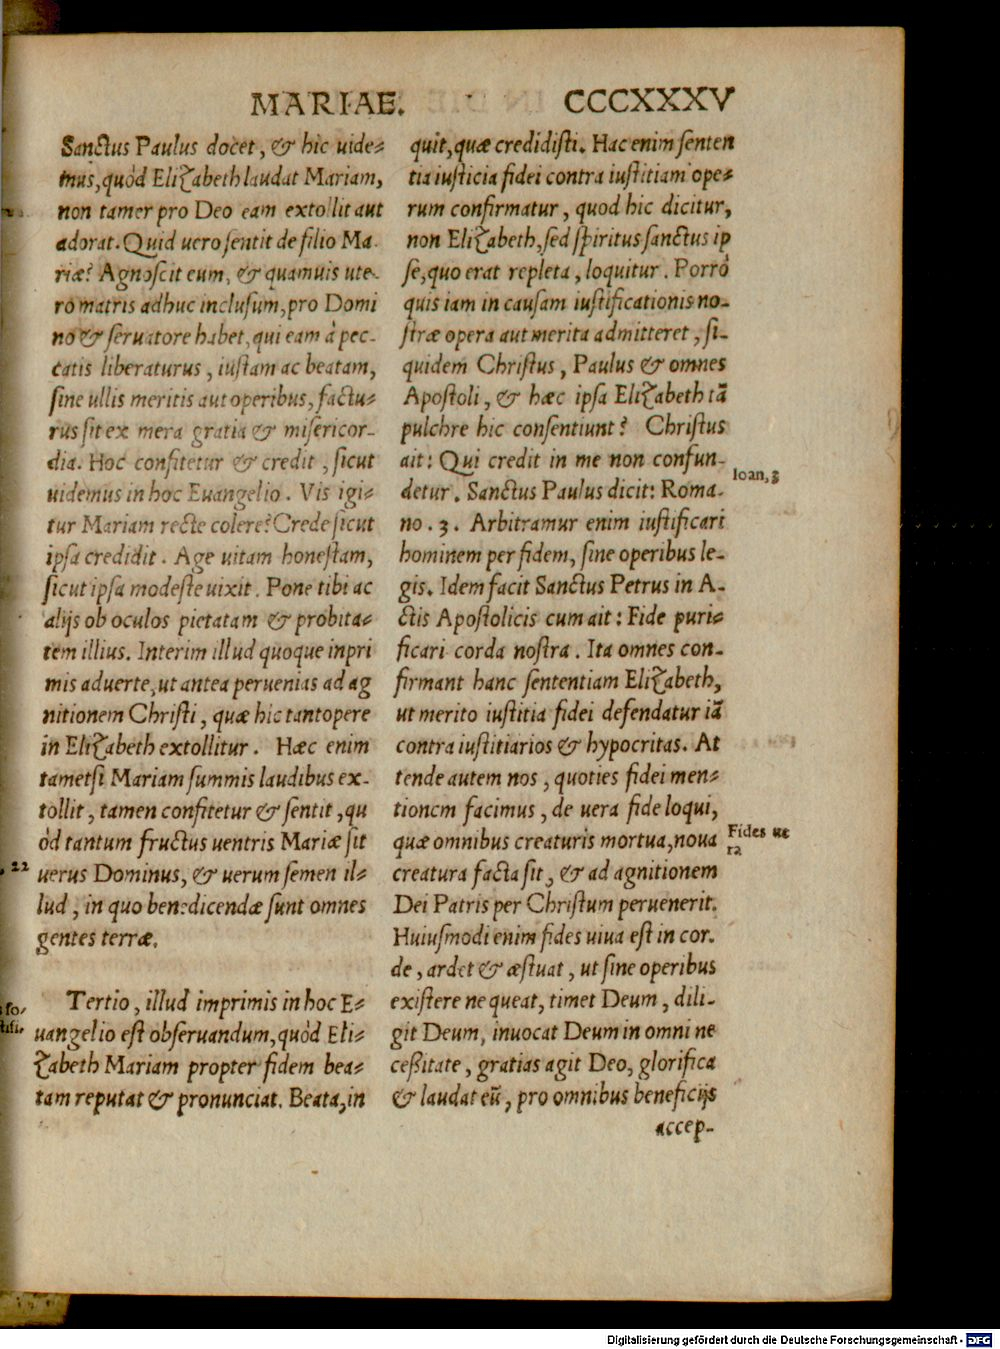 MARIAE. CCCXXXV
Sanctus Paulus docet, & hic uide-
mus, quòd Elizabeth laudat Mariam,
non tamen pro Deo eam extollit aut
adorat. Quid uero sentit de filio Ma-
riæ? Agnoscit eum, & quamuis ute-
ro matris adhuc inclusum, pro Domi
no & seruatore habet, qui eam à pec-
catis liberaturus, iustam ac beatam,
sine ullis meritis aut operibus, factu-
rus sit ex mera gratia & misericor-
dia. Hoc confitetur & credit, sicut
uidemus in hoc Euangelio. Vis igi-
tur Mariam recte colere? Crede sicut
ipsa credidit. Age uitam honestam,
sicut ipsa modeste uixit. Pone tibi ac
alijs ob oculos pietatam & probita-
tem illius. Interim illud quoque inpri
mis aduerte, ut antea peruenias ad ag
nitionem Christi, quæ hic tantopere
in Elizabeth extollitur. Hæc enim
tametsi Mariam summis laudibus ex-
tollit, tamen confitetur & sentit, qu
òd tantum fructus uentris Mariæ sit
uerus Dominus, & uerum semen il-
lud, in quo benedicendæ sunt omnes
gentes terræ.
22
Tertio, illud imprimis in hoc E-
uangelio est obseruandum, quòd Eli-
zabeth Mariam propter fidem bea-
tam reputat & pronunciat. Beata, in
quit, quæ credidisti. Hac enim senten
tia iusticia fidei contra iustitiam ope-
rum confirmatur, quod hic dicitur,
non Elizabeth, sed spiritus sanctus ip
se, quo erat repleta, loquitur. Porrò
quis iam in causam iustificationis no-
stræ opera aut merita admitteret, si-
quidem Christus, Paulus & omnes
Apostoli, & hæc ipsa Elizabeth tā
pulchre hic consentiunt? Christus
ait: Qui credit in me non confun-
detur. Sanctus Paulus dicit: Roma-
no. 3. Arbitramur enim iustificari
hominem per fidem, sine operibus le-
gis. Idem facit Sanctus Petrus in A-
ctis Apostolicis cum ait: Fide puri-
ficari corda nostra. Ita omnes con-
firmant hanc sententiam Elizabeth,
ut merito iustitia fidei defendatur iā
contra iustitiarios & hypocritas. At
tende autem nos, quoties fidei men-
tionem facimus, de uera fide loqui,
quæ omnibus creaturis mortua, noua
creatura facta sit, & ad agnitionem
Dei Patris per Christum peruenerit.
Huiusmodi enim fides uiua est in cor-
de, ardet & æstuat, ut sine operibus
existere nequeat, timet Deum, dili-
git Deum, inuocat Deum in omni ne
cessitate, gratias agit Deo, glorifica
& laudat eū, pro omnibus beneficijs
accep-
Ioan, 3
Fides ue
ra
Digitalisierung gefördert durch die Deutsche Forschungsgemeinschaft - DFG